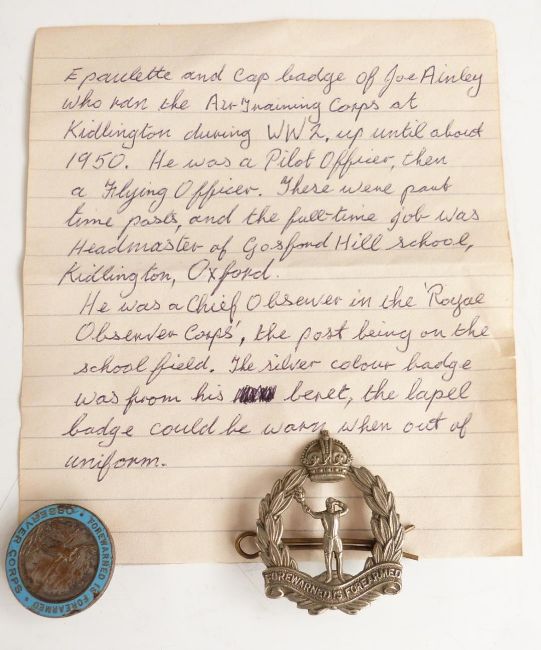 Epaulette and Cap badge of Joe Ainley
who ran the Air Training Corps at
Kidlington during WW2, up until about
1950. He was a Pilot Officer, then
a Flying Officer. These were part
time posts, and the full-time job was
Headmaster of Gosford Hill school,
Kidlington, Oxford.
He was a Chief Observer in the 'Royal
Observer Corps', the post being on the
school field. The silver colour badge
was from his beret, the lapel
badge could be worn when out of
uniform.
FOREWARNED IS FOREARMED
OBSERVER CORPS
FOREWARNED IS FOREARMED